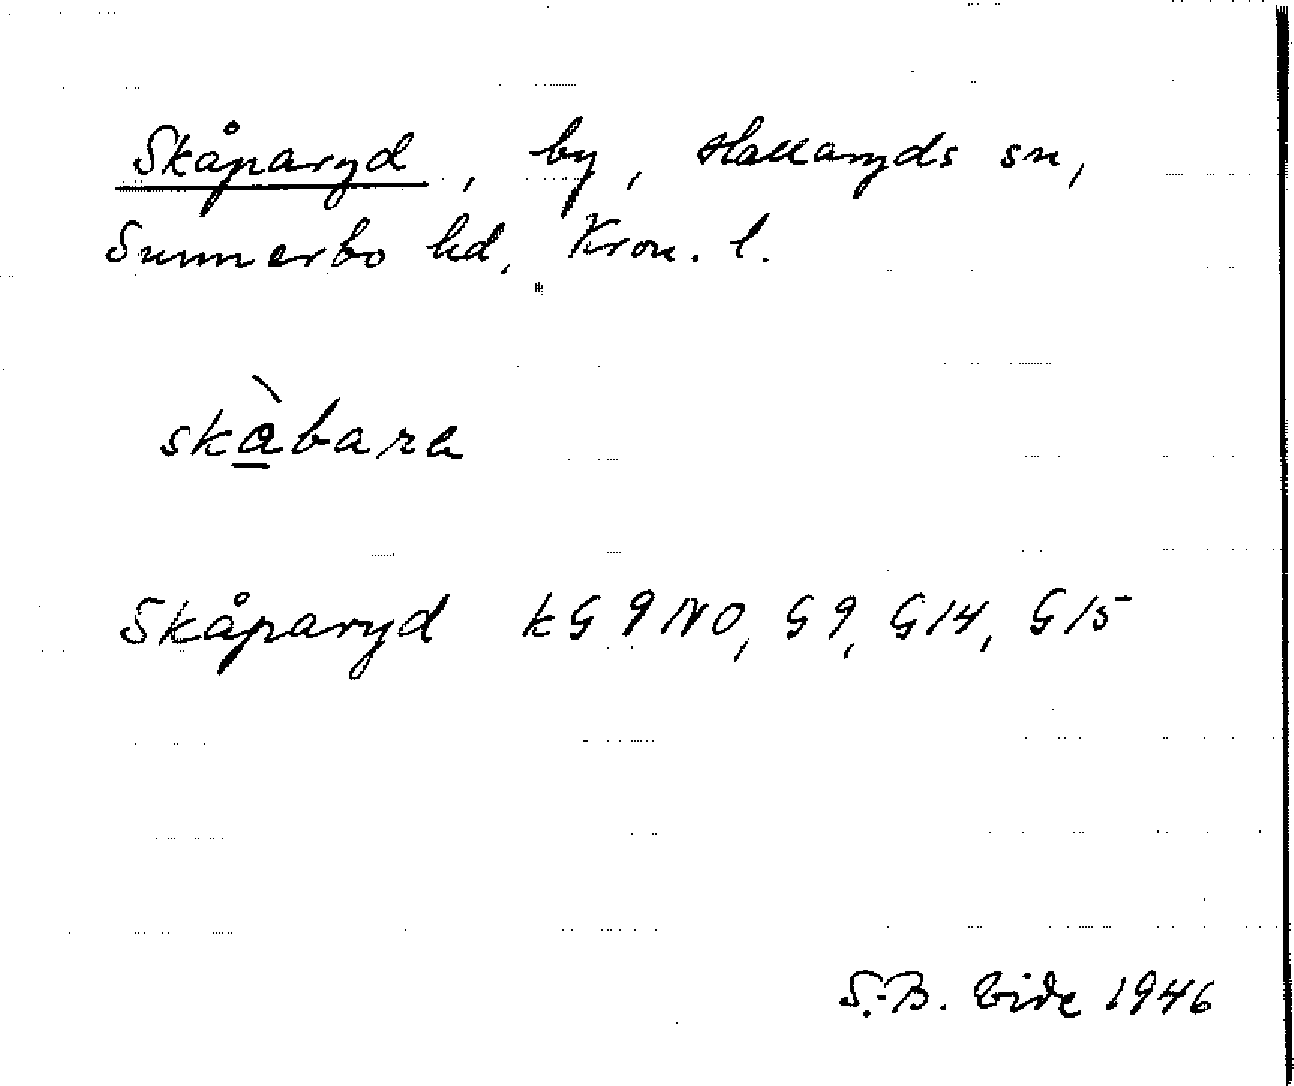 Skåparyd, by, Hallaryds sn,
Sunnerbo hd, Kron. l.
skàbara
Skåparyd kG 9 NO, G 9, G 14, G 15
S.-B. Vide 1946